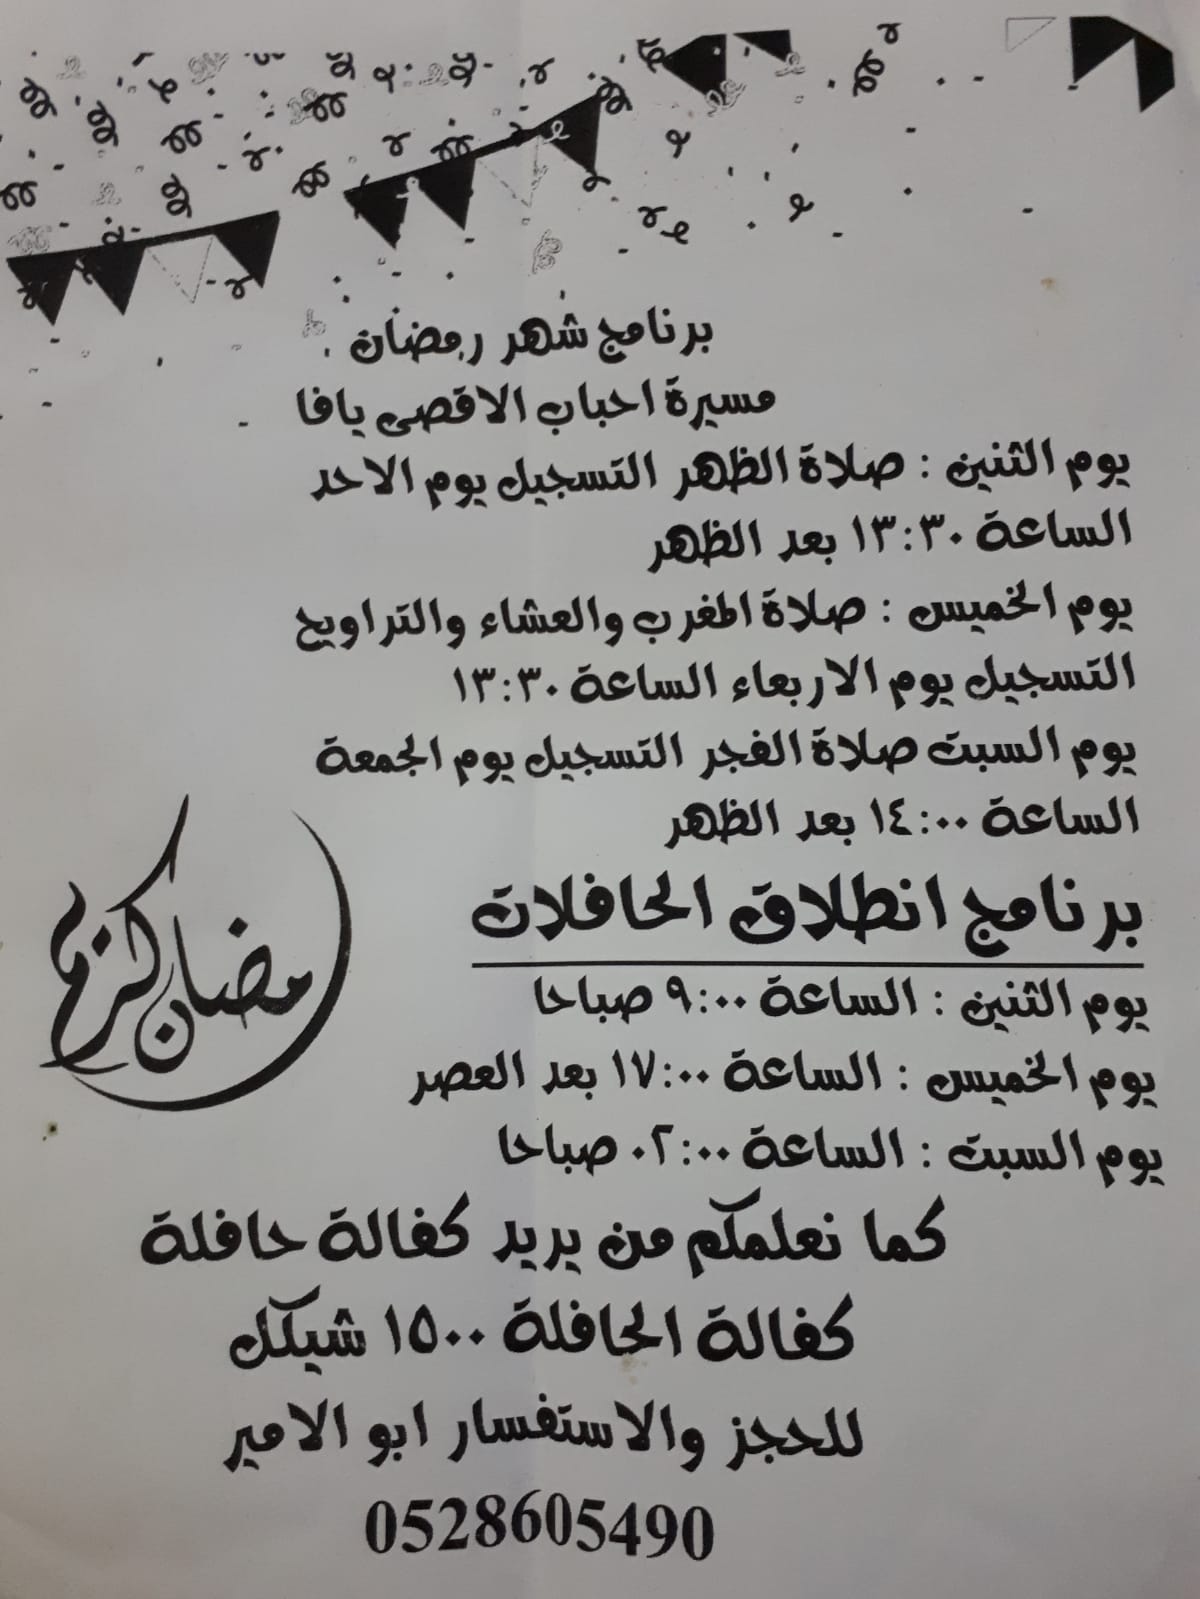 برنامج شهر رمضان
مسيرة احباب الاقصى يافا
يوم الثنين : صلاة الظهر التسجيل يوم الاحد
الساعة ١٣:٣٠ بعد الظهر
يوم الخميس : صلاة المغرب والعشاء والتراويح
التسجيل يوم الاربعاء الساعة ١٣:٣٠
يوم السبت صلاة الفجر التسجيل يوم الجمعة
الساعة ١٤:٠٠ بعد الظهر
برنامج انطلاق الحافلات
يوم الثنين : الساعة ٩:٠٠ صباحا
يوم الخميس : الساعة ١٧:٠٠ بعد العصر
يوم السبت : الساعة ٠٢:٠٠ صباحا
رمضان كريم
كما نعلمكم من يريد كفالة حافلة
كفالة الحافلة ١٥٠٠ شيكل
للحجز والاستفسار ابو الامير
0528605490